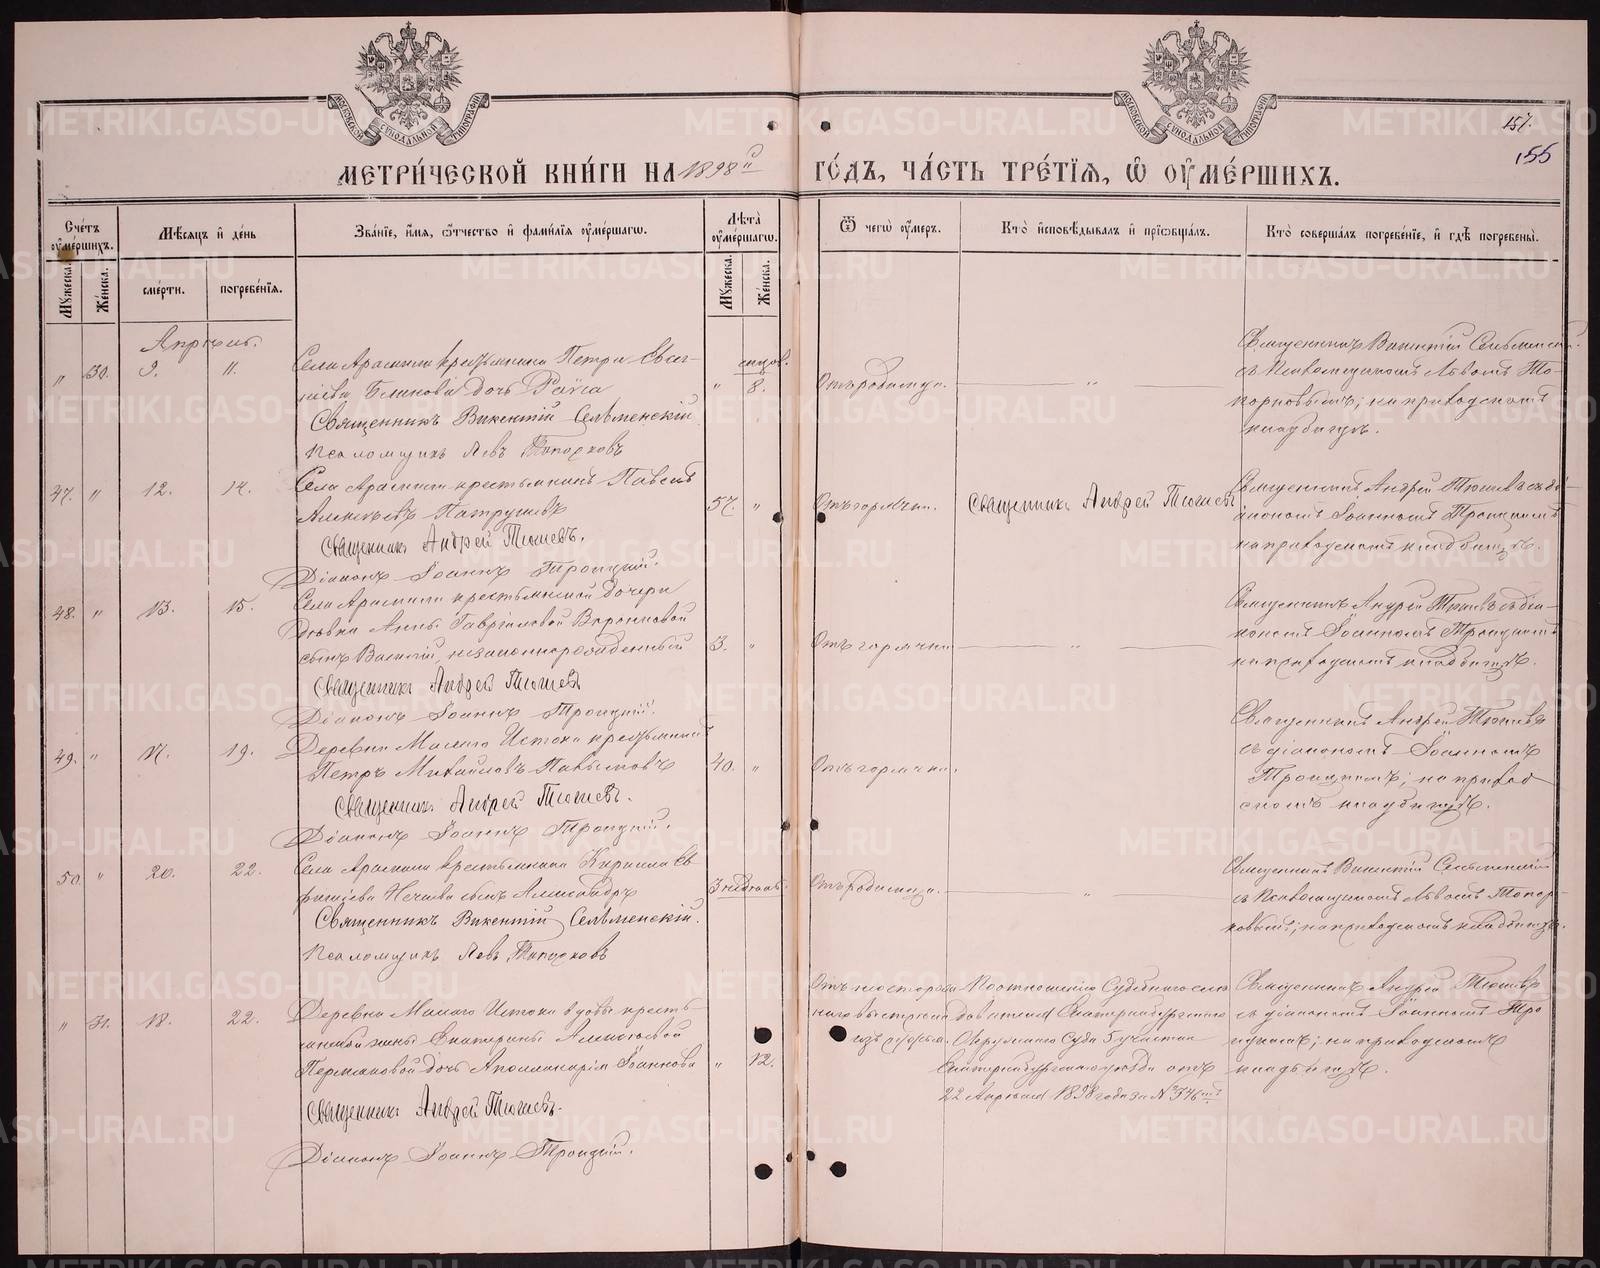 МЕТРИ́ЧЕСКОЙ КНИ́ГИ НА 1898й ГО́ДЪ, ЧА́СТЬ ТРЕ́ТІѦ, Ѡ҆ ОУ҆МЕ́РШИХЪ.
157.
155
Сче́тъ оу҆ме́ршихъ.
Мѣ́сяцъ и҆ де́нь
Зва́ніе, и҆́мя, ѻ҆́тчество и҆ фами́лія оу҆ме́ршагѡ.
Лѣ́та оу҆ме́ршагѡ.
Ѿ чегѡ̀ оу҆́меръ.
Кто̀ и҆сповѣ́дывалъ и҆ прїѡбща́лъ.
Кто̀ соверша́лъ погребе́ніе, и҆ гдѣ̀ погребены̀.
Мꙋ́жеска.
Же́нска.
сме́рти.
погребе́нїя.
Мꙋ́жеска.
Же́нска.
Апрѣль.
" 30. 9. 11.
Села Арамили крестьянина Петра
дочь Раиса
Священникъ Викентій Сельменскій
Псаломщикъ Левъ Топорковъ
" 8.
Отъ родимца.
"
Священникъ Викентій Сельменскій
съ Псаломщикомъ Львомъ То-
порковымъ; на приходскомъ
кладбищѣ.
47. " 12. 14.
Села Арамили крестьянинъ Павелъ
Алексѣевъ Патрушевъ
Священникъ Андрей Тюшевъ.
Діаконъ Іоаннъ Троицкій.
57. "
Отъ горячки.
Священникъ Андрей Тюшевъ
Священникъ Андрей Тюшевъ съ ді-
акономъ Іоанномъ Троицкимъ
на приходскомъ кладбищѣ.
48. " 13. 15.
Села Арамили крестьянской дочери
дѣвки Анны Гавріиловой Ворониной
сынъ Василій, незаконнорожденный
Священникъ Андрей Тюшевъ
Діаконъ Іоаннъ Троицкій.
3. "
Отъ горячки
"
Священникъ Андрей Тюшевъ съ діа-
кономъ Іоанномъ Троицкимъ
на приходскомъ кладбищѣ.
49. " 17. 19.
Деревни Малаго Истока крестьянинъ
Петръ Михайловъ
Священникъ Андрей Тюшевъ.
Діаконъ Іоаннъ Троицкій.
40. "
Отъ горячки.
Священникъ Андрей Тюшевъ
съ діакономъ Іоанномъ
Троицкимъ; на приход
скомъ кладбищѣ.
50. " 20. 22.
Села Арамили крестьянина Кирилла Ев
сынъ Александръ
Священникъ Викентій Сельменскій.
Псаломщикъ Левъ Топорковъ
3 недѣль.
Отъ родимца.
"
Священникъ Викентій Сельменскій
съ Псаломщикомъ Львомъ Топор-
ковымъ; на приходскомъ кладбищѣ.
" 31. 18. 22.
Деревни Малаго Истока вдовы кресть-
янской жены Екатерины Алексѣевой
Пермяковой дочь Аполлинарія Іоаннова
Священникъ Андрей Тюшевъ.
Діаконъ Іоаннъ Троицкій.
" 12.
выстрѣла
изъ ружья.
По отношенію Судебнаго слѣ
дователя Екатеринбургскаго
Окружнаго Суда 5 участка
Екатеринбургскаго уѣзда отъ
22 Апрѣля 1898 года за № 546
Священникъ Андрей Тюшевъ
съ діакономъ Іоанномъ Тро
ицкимъ; на приходскомъ
кладбищѣ.
METRIKI.GASO-URAL.RU